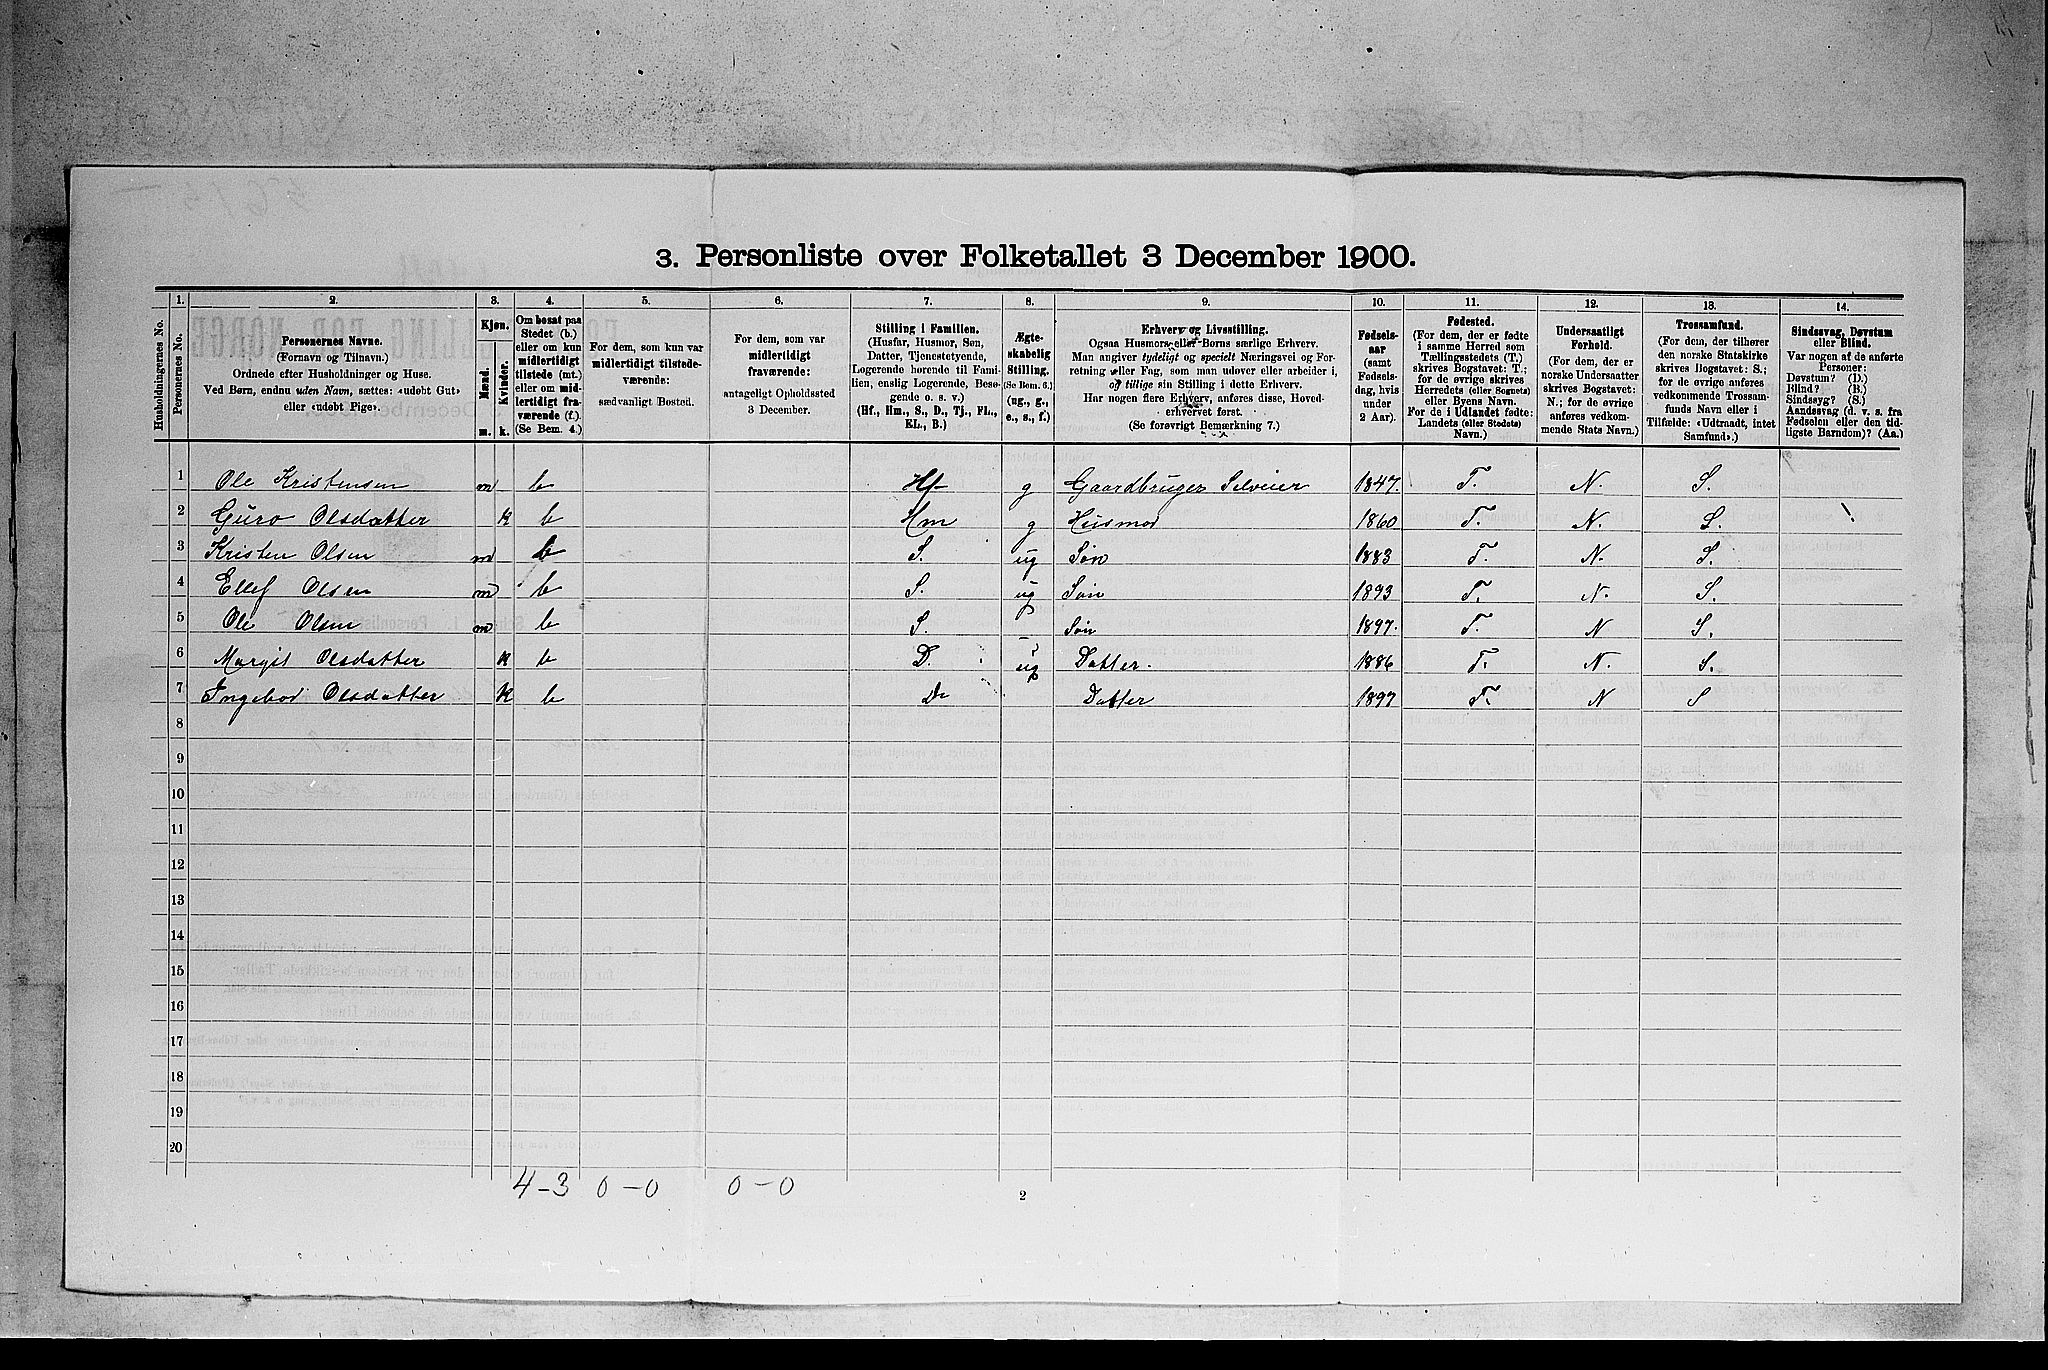 3. Personliste over Folketallet 3 December 1900.
1. 2. 3. 4. 5. 6. 7. 8. 9. 10. 11. 12. 13. 14.
Husholdningernes No.
Personernes No.
Personernes Navne.
(Fornavn og Tilnavn.)
Ordnede efter Husholdninger og Huse.
Ved Børn, endnu uden Navn, sættes: «udøbt Gut»
eller «udøbt Pige».
Kjøn.
Mænd.
Kvinder.
m. k.
Om bosat paa
Stedet (b.)
eller om kun
midlertidigt
tilstede (mt.)
eller om mid-
lertidigt fra-
værende (f.)
(Se Bem. 4.)
For dem, som kun var
midlertidigt tilstede-
værende:
sædvanligt Bosted.
For dem, som var
midlertidigt
fraværende:
antageligt Opholdssted
3 December.
Stilling i Familien.
(Husfar, Husmor, Søn,
Datter, Tjenestetyende,
Logerende hørende til Fami-
lien, enslig Logerende, Besø-
gende o. s. v.)
(Hf., Hm., S., D., Tj., FL.,
EL., B.)
Ægte-
skabelig
Stilling.
(Se Bem. 6.)
(ug., g.,
e., s., f.)
Erhverv og Livsstilling.
Ogsaa Husmors eller Børns særlige Erhverv.
Man angiver tydeligt og specielt Næringsvei og For-
retning eller Fag, som man udøver eller arbeider i,
og tillige sin Stilling i dette Erhverv.
Har nogen flere Erhverv, anføres disse, Hoved-
erhvervet først.
(Se forøvrigt Bemærkning 7.)
Fødsels-
aar
(samt
Fødsels-
dag, hvis
under
2 Aar).
Fødested.
(For dem, der er fødte
i samme Herred som
Tællingsstedets (T.)
skrives Bogstavet: T.;
for de øvrige skrives
Herredets (eller Sognets)
eller Byens Navn.
For de i Udlandet fødte:
Landets (eller Stedets)
Navn.)
Undersaatligt
Forhold.
(For dem, der er
norske Undersaatter
skrives Bogstavet:
N.; for de øvrige
anføres vedkom-
mende Stats Navn.)
Trossamfund.
(For dem, der tilhører
den norske Statskirke
skrives Bogstavet: S.;
for de øvrige anføres
vedkommende Trossam-
funds Navn eller i
Tilfælde: «Udtraadt, intet
Samfund».)
Sindssvag, Døvstum
eller Blind.
Var nogen af de anførte
Personer:
Døvstum? (D.)
Blind? (B.)
Sindssyg? (S.)
Aandssvag (d. v. s. fra
Fødselen eller den tid-
ligste Barndom)? (Aa.)
1 Ole Kristensen m b Hf g Gaardbruger Selveier 1847. T. N. S.
2 Guro Olsdatter k b Hm g Husmor 1860 T. N. S.
3 Kristen Olsen m b S. ug Søn 1883 T. N. S.
4 Ellef Olsen m b S. ug Søn 1893 T. N. S.
5 Ole Olsen m b S. - Søn 1897. T. N S.
6 Margit Olsdatter k b D. ug Datter. 1886 T. N. S.
7 Ingebor Olsdatter k b D. Datter 1897 T. N S
8
9
10
11
12
13
14
15
16
17
18
19
20
4-3 0-0 0-0
2